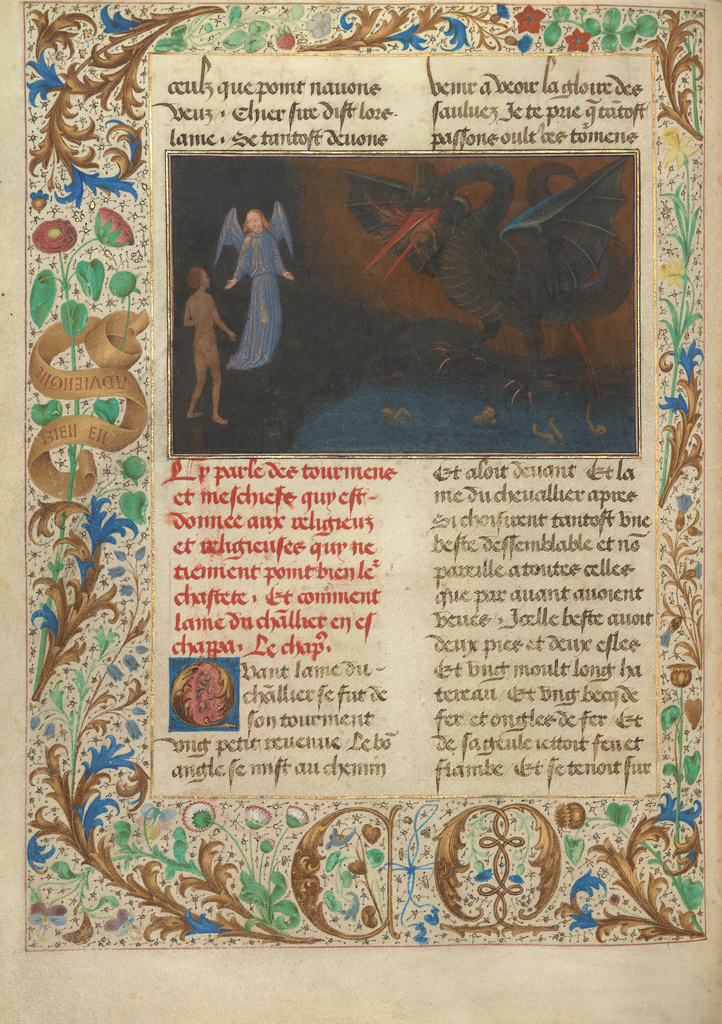 ceulz que point nauons
veuz · Chier sire dist lors·
lame · Se tantost deuons
venir a veoir la gloire des
sauluez Je te prie q̃ tātost
passons oult' ces tōmens
Cy parle des tourmens
et meschiefz quy est-
donnee aux religieuz
et religieuses quy ne
tiennent point bien le²
chastete · Et comment
lame du chl̃lier en es
chappa · Le chap̃ ·
Quant lame du-
chl̃lier se fut de
son tourment
vng petit reuenue Le bō
angle se mist au chemin
Et aloit deuant Et la
me du cheuallier apres
Si choisirent tantost vne
beste dessemblable et nō
pareille a toutes celles
que par auant auoient
veues · Icelle beste auoit
deux pies et deux esles
Et vng moult long ha
tereau Et vng becq de
fer et ongles de fer Et
de sa geule iettoit feu et
flambe Et se tenoit sur
ADVIENGNE
BIEN EN